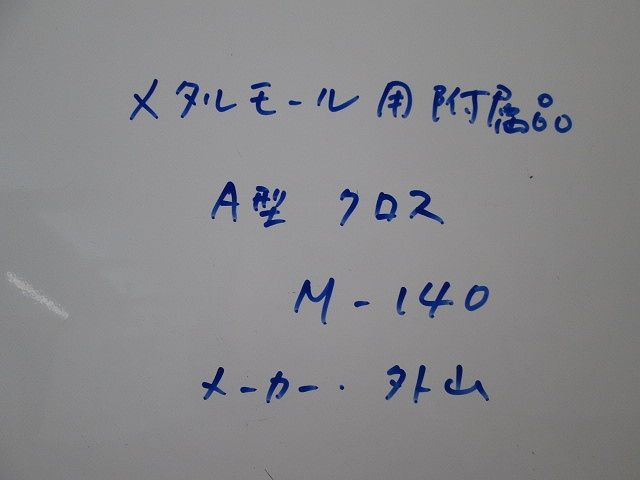 メタルモール用附属品
A型 クロス
M-140
メーカー・外山